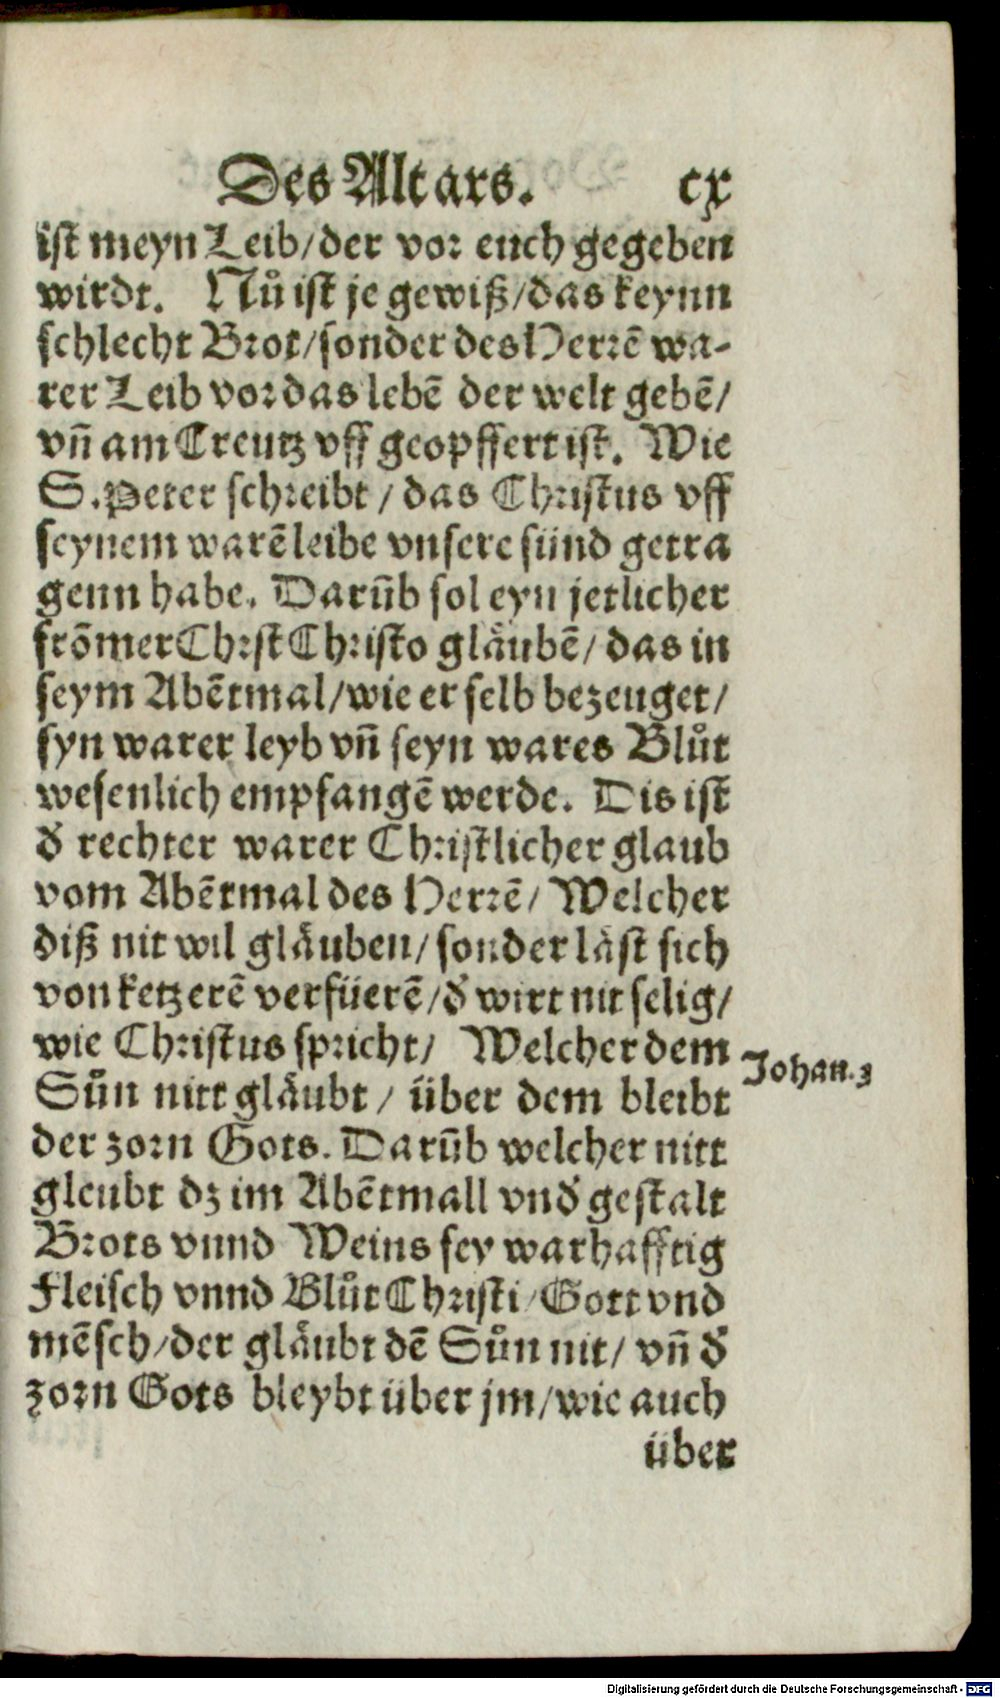 Des Altars. cx
ist meyn Leib/der vor euch gegeben
wirdt. Nů ist je gewiß/das keynn
schlecht Brot/sonder des Herrē wa-
rer Leib vor das lebē der welt gebē/
vñ am Creutz vff geopffert ist. Wie
S. Peter schreibt / das Christus vff
seynem warē leibe vnsere sünd getra
genn habe. Darūb sol eyn jetlicher
frōmer Chrst Christo glaͤubē/ das in
seym Abētmal/wie er selb bezeuget/
syn warer leyb vñ seyn wares Blůt
wesenlich empfangē werde. Dis ist
d̓ rechter warer Christlicher glaub
vom Abētmal des Herrē/ Welcher
diß nit wil glaͤuben/ sonder laͤst sich
von ketzerē verfüerē/d̓ wirt nit selig/
wie Christus spricht/ Welcher dem
Johan.3
Sůn nitt glaͤubt / über dem bleibt
der zorn Gots. Darūb welcher nitt
gleubt dz im Abētmall vnd̓ gestalt
Brots vnnd Weins sey warhafftig
Fleisch vnnd Blůt Christi/Gott vnd
mēsch/der glaͤubt dē Sůn nit/ vñ d̓
zorn Gots bleybt über jm/wie auch
über
Digitalisierung gefördert durch die Deutsche Forschungsgemeinschaft - DFG